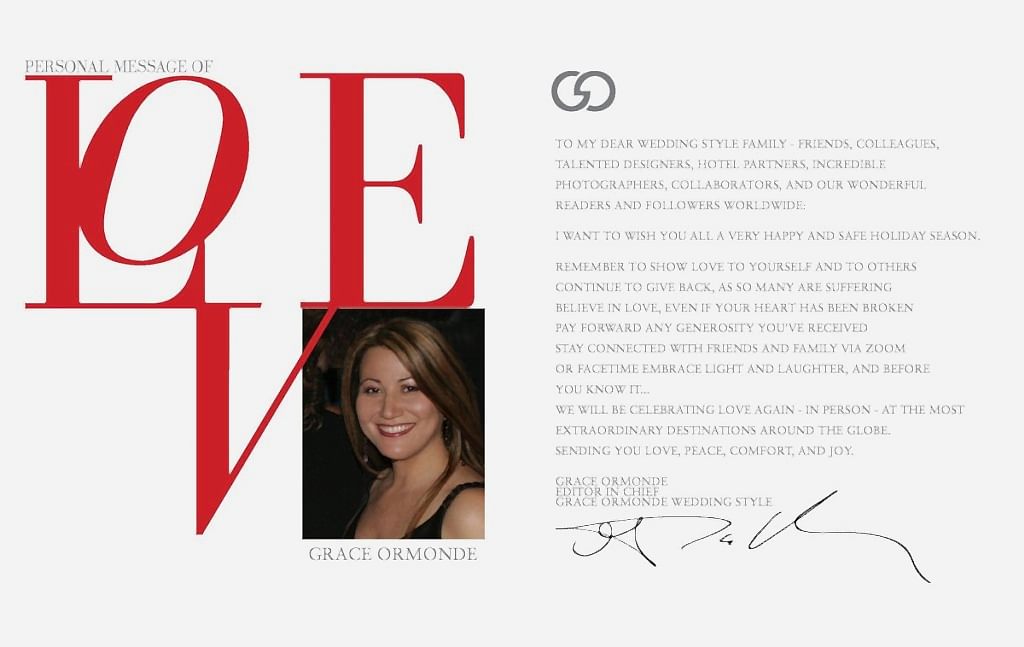 PERSONAL MESSAGE OF
LOVE
GRACE ORMONDE
GO
TO MY DEAR WEDDING STYLE FAMILY - FRIENDS, COLLEAGUES,
TALENTED DESIGNERS, HOTEL PARTNERS, INCREDIBLE
PHOTOGRAPHERS, COLLABORATORS, AND OUR WONDERFUL
READERS AND FOLLOWERS WORLDWIDE:
I WANT TO WISH YOU ALL A VERY HAPPY AND SAFE HOLIDAY SEASON.
REMEMBER TO SHOW LOVE TO YOURSELF AND TO OTHERS
CONTINUE TO GIVE BACK, AS SO MANY ARE SUFFERING
BELIEVE IN LOVE, EVEN IF YOUR HEART HAS BEEN BROKEN
PAY FORWARD ANY GENEROSITY YOU'VE RECEIVED
STAY CONNECTED WITH FRIENDS AND FAMILY VIA ZOOM
OR FACETIME EMBRACE LIGHT AND LAUGHTER, AND BEFORE
YOU KNOW IT...
WE WILL BE CELEBRATING LOVE AGAIN - IN PERSON - AT THE MOST
EXTRAORDINARY DESTINATIONS AROUND THE GLOBE.
SENDING YOU LOVE, PEACE, COMFORT, AND JOY.
GRACE ORMONDE
EDITOR IN CHIEF
GRACE ORMONDE WEDDING STYLE